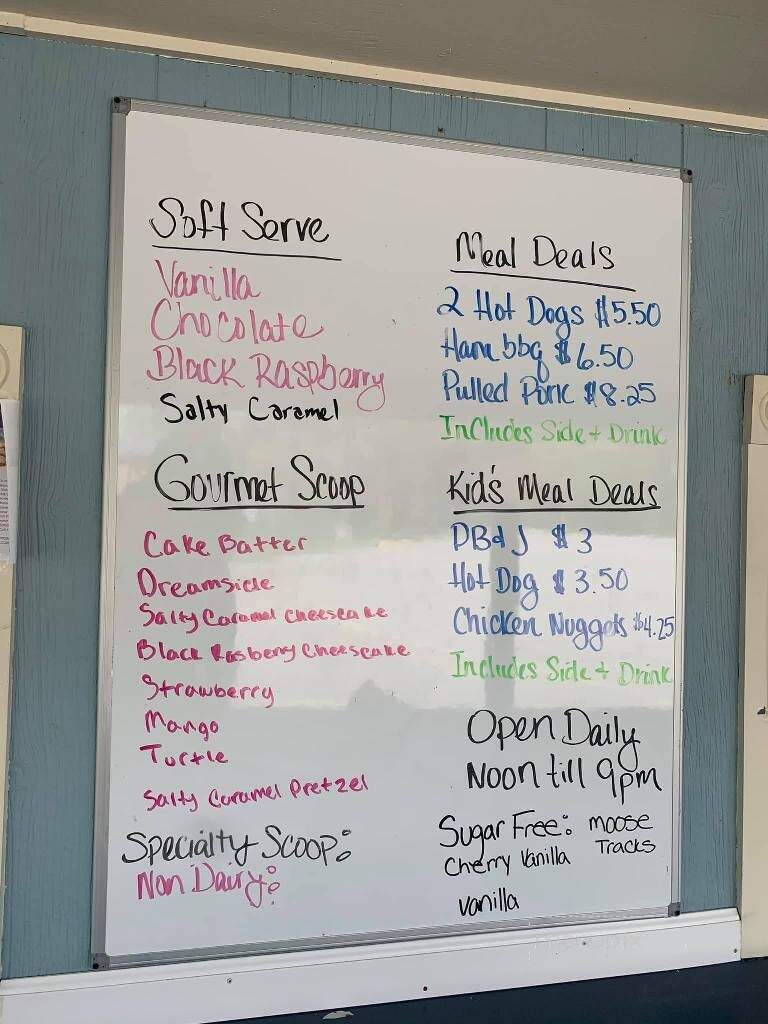 Soft Serve
Vanilla
Chocolate
Black Raspberry
Salty Caramel
Gourmet Scoop
Cake Batter
Dreamsicle
Salty Caramel Cheesecake
Black Rasberry Cheesecake
Strawberry
Mango
Turtle
Salty Caramel Pretzel
Specialty Scoop:
Non Dairy:
Meal Deals
2 Hot Dogs $5.50
Ham bbq $6.50
Pulled Pork $8.25
Includes Side + Drink
Kid's Meal Deals
PB&J $3
Hot Dog $3.50
Chicken Nuggets $4.25
Includes Side + Drink
Open Daily
Noon till 9pm
Sugar Free: Moose
Tracks
Cherry Vanilla
Vanilla